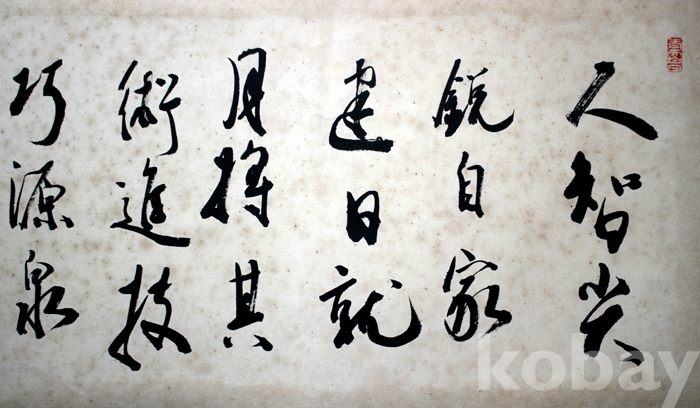 人智尖
銳自家
建日就
月將其
術進技
巧源泉
kobay